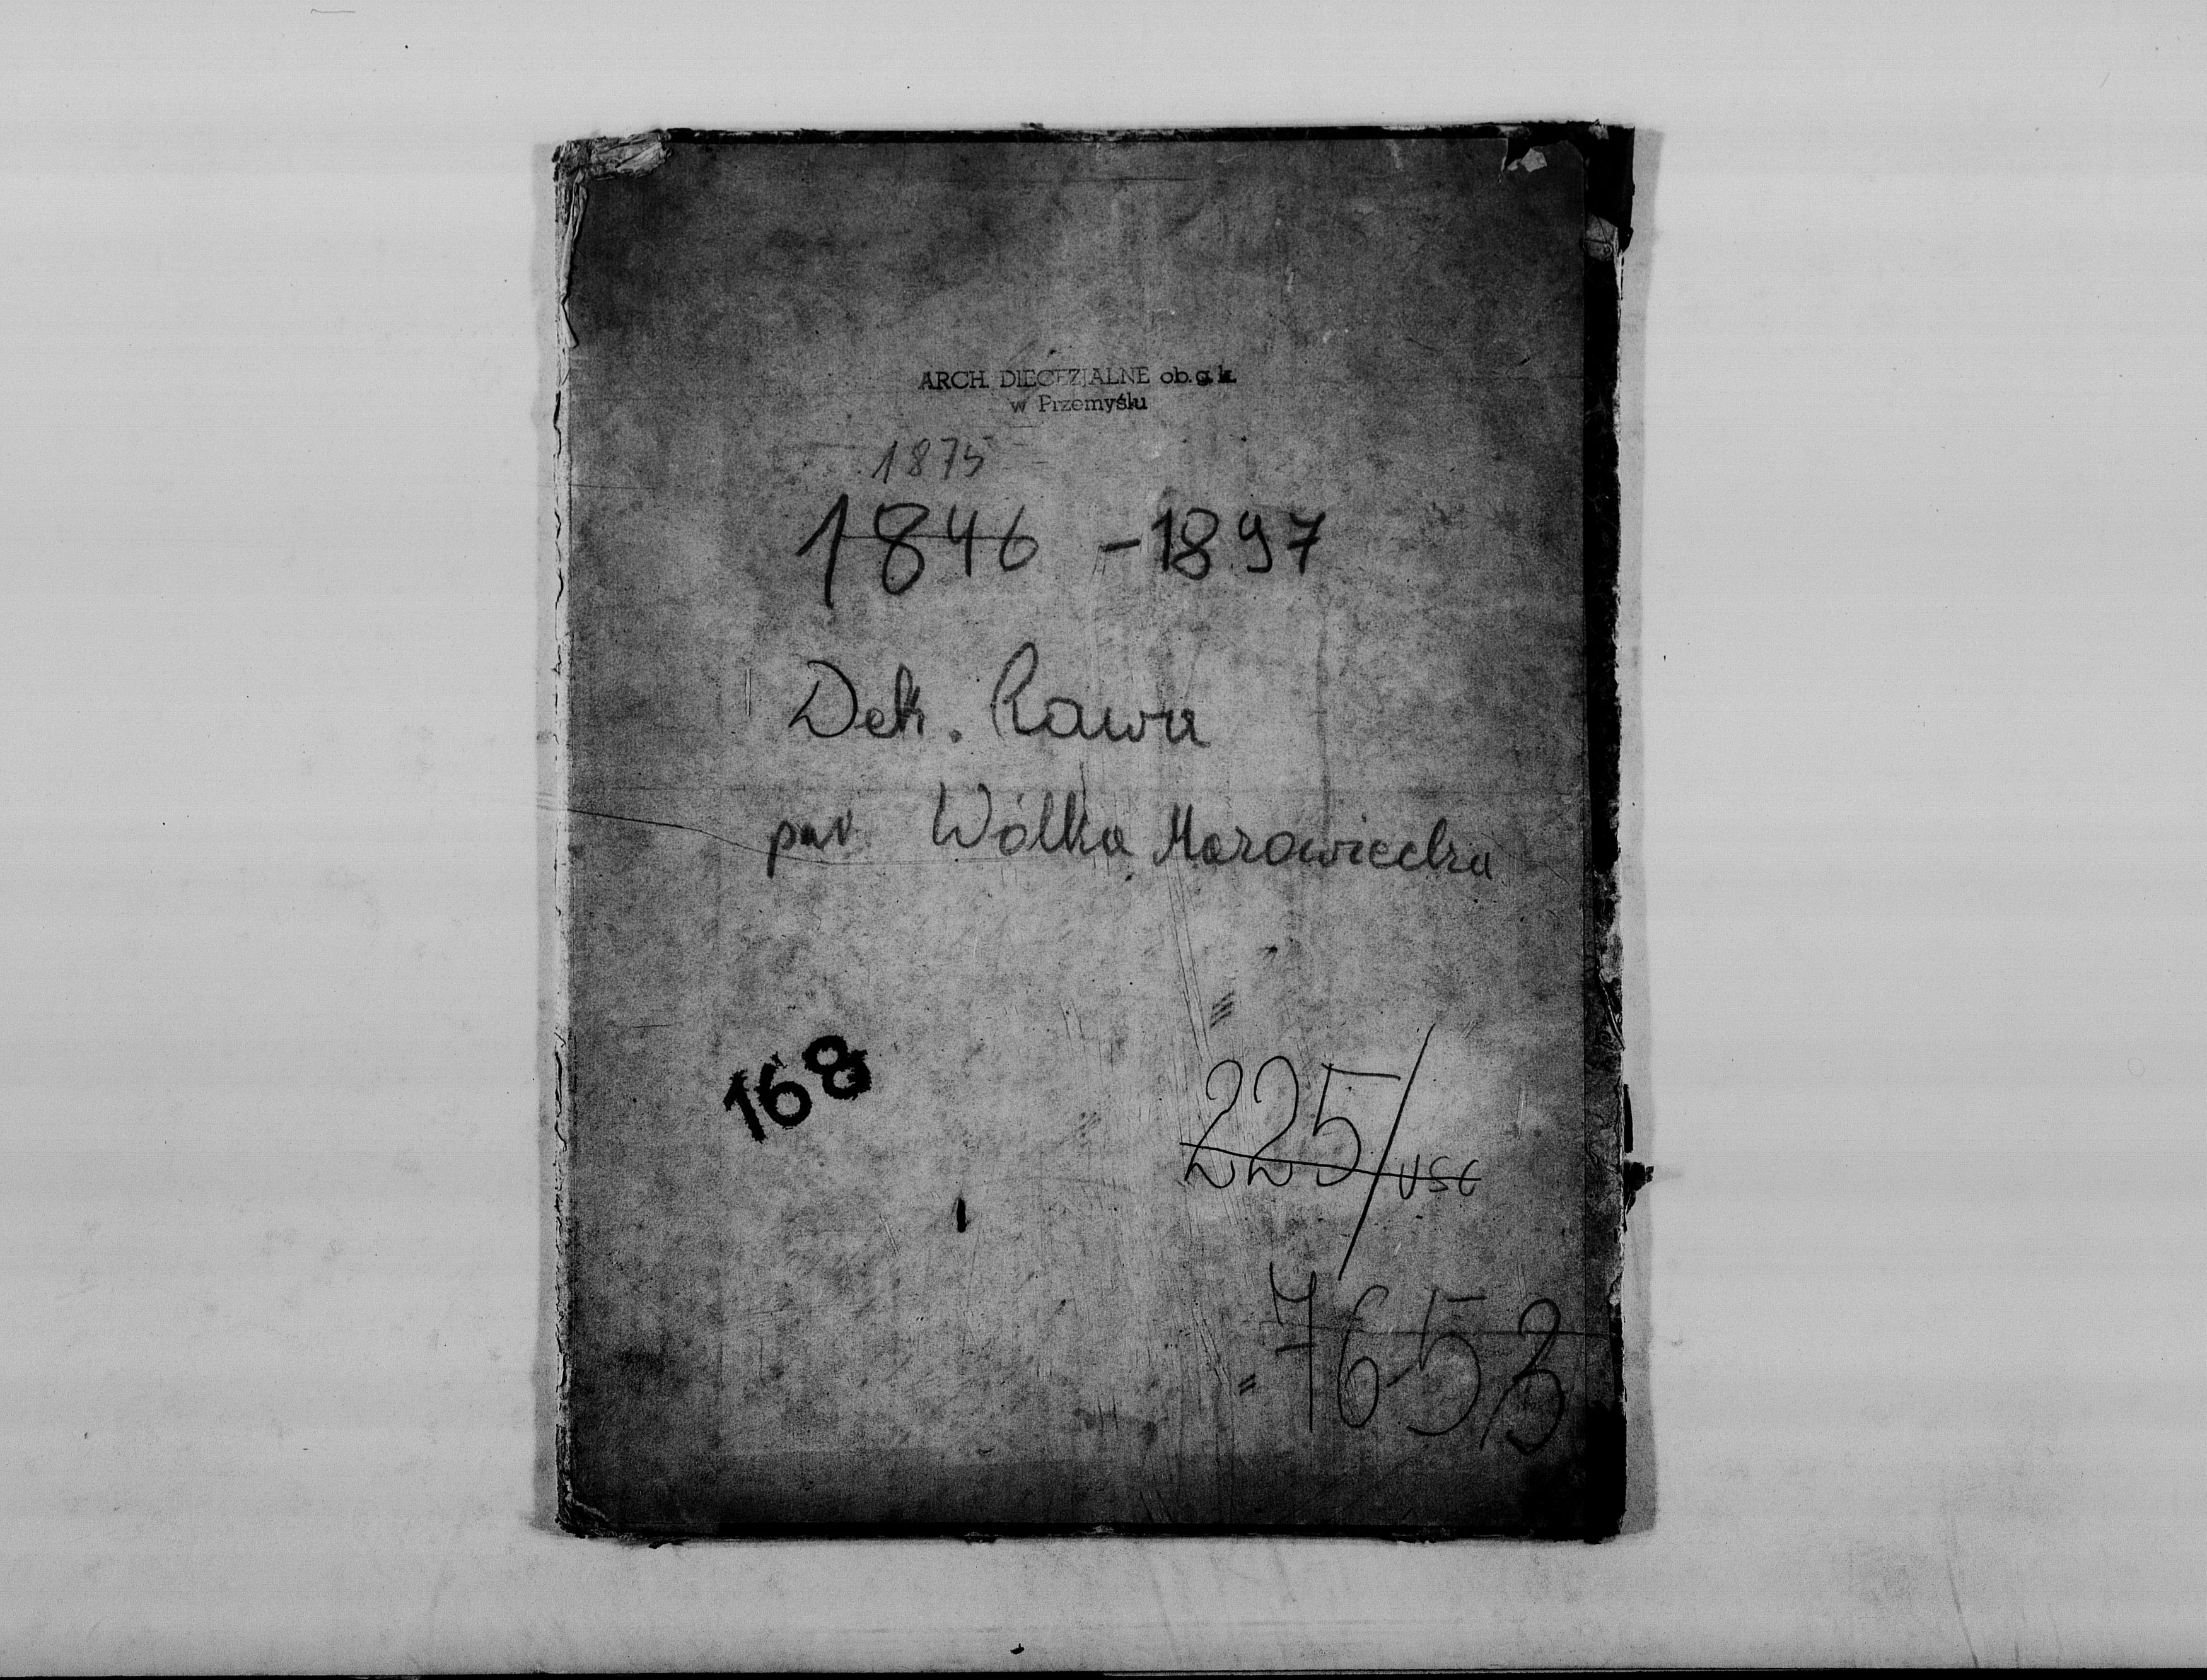 ARCH. DIECEZJALNE ob. g. k.
w Przemyślu
1875
1846 - 1897
Dek. Rawa
par. Wólka Mazowiecka
168
225/USC
7653